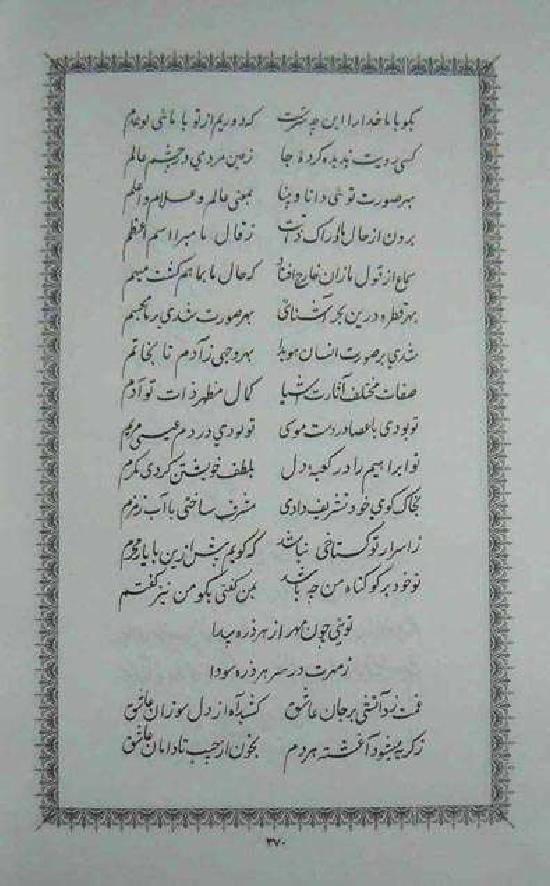 بگو با ما خدا را این چه سرّیست که دوریم از تو با ما تو
کسی بردیت ندیده کرده جا زمین مردمی و چشم عالم
بهر صورت توئی دانا و بینا بمعنی عالم و علام و اعلم
بردن از حال ما ادراک ذاتت ز قال ما مبرا اسم اعظم
سماع از قول ما زان خارج افتاد که حال ما بما هم گشت مبهم
بهر قطره درین بحر آشنائی بهر صورت شدی بر ما مجسم
شدی بر صورت انسان هویدا بهر وجهی ز آدم تا بخاتم
صفات مختلف آثارت اشیا کمال مظهر ذات تو آدم
تو بودی با عصا در دست موسی تو بودی در دم عیسی مریم
تو ابراهیم را در کعبه دل بلطف خویشتن کردی مکرم
بخاک کوی خود تشریف دادی مشرف ساختی با آب زمزم
ز اسرار تو گستاخی نباشد که گویم پیش ازین با یار محرم
تو خود بر گو گناه من چه باشد بمن گفتی بگو من نیز گفتم
توئی چون مهر از هر ذره پیدا
ز مهرت در سر هر ذره سودا
غمت زد آتشی بر جان عاشق کشید آه از دل سوزان عاشق
ز گریه میشود آغشته هر دم بخون از جیب تا دامان عاشق
۳۷۰